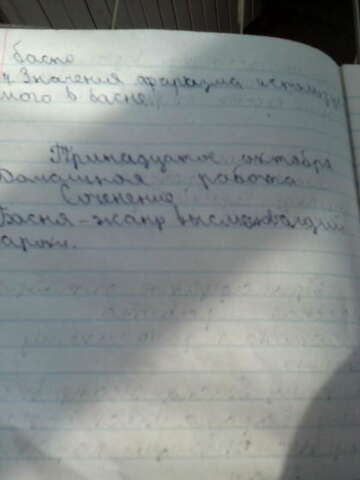 басно
4 Значения фаразма использу
мого в басне.
Тринадцатое октября
Домашняя робота
Соченение
Басня - жанр высмеивающий
ароки.